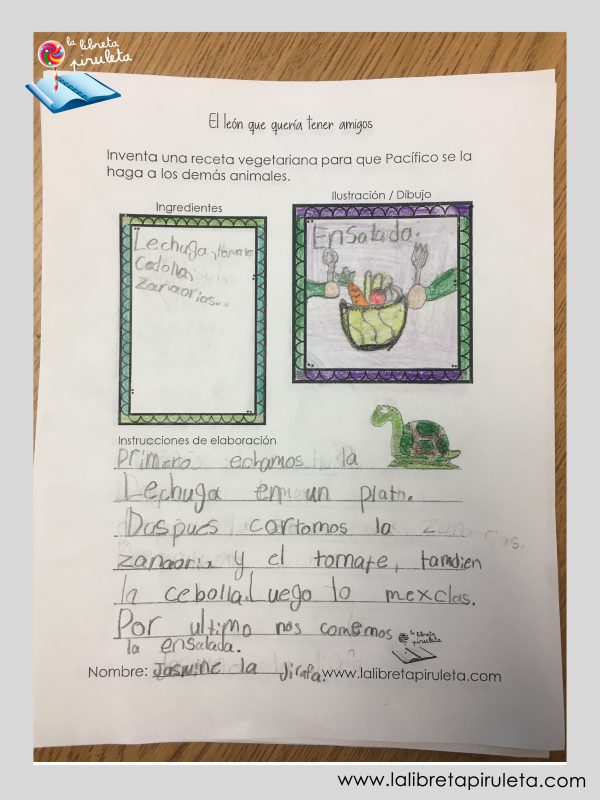 la libreta
piruleta
El león que quería tener amigos
Inventa una receta vegetariana para que Pacífico se la
haga a los demás animales.
Ingredientes
Lechuga, tomate
Cedolla,
Zanaorias..
Ilustración / Dibujo
Ensalada.
Instrucciones de elaboración
Primero echamos la
Lechuga en un plato.
Daspues cortomos la zanaorias.
zanaoria y el tomate, tamdien
la cebolla. Luego lo mexclas.
Por ultimo nos comemos
la ensalada.
la libreta
piruleta
Nombre: Jasmine la Jirafa. www.lalibretapiruleta.com
www.lalibretapiruleta.com